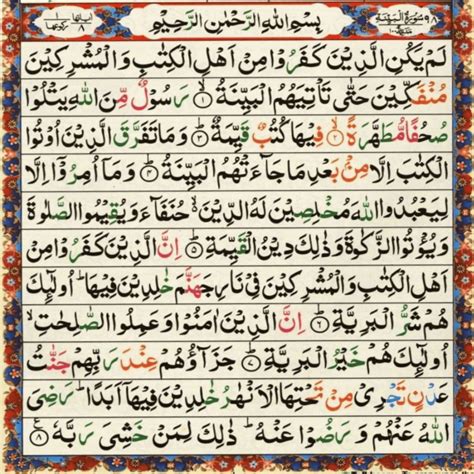 ۹۸ سُوْرَةُ الْبَيِّنَةِ
بِسْمِ اللهِ الرَّحْمٰنِ الرَّحِيْمِ
اٰیاتها ۸ رکوعها ۱
لَمْ يَكُنِ الَّذِيْنَ كَفَرُوْا مِنْ اَهْلِ الْكِتٰبِ وَالْمُشْرِكِيْنَ
مُنْفَكِّيْنَ حَتّٰى تَاْتِيَهُمُ الْبَيِّنَةُ ۙ﴿۱﴾ رَسُوْلٌ مِّنَ اللهِ يَتْلُوْا
صُحُفًا مُّطَهَّرَةً ۙ﴿۲﴾ فِيْهَا كُتُبٌ قَيِّمَةٌ ؕ﴿۳﴾ وَمَا تَفَرَّقَ الَّذِيْنَ اُوْتُوا
الْكِتٰبَ اِلَّا مِنْۢ بَعْدِ مَا جَآءَتْهُمُ الْبَيِّنَةُ ؕ﴿۴﴾ وَمَاۤ اُمِرُوْۤا اِلَّا
لِيَعْبُدُوا اللهَ مُخْلِصِيْنَ لَهُ الدِّيْنَ ۙ حُنَفَآءَ وَيُقِيْمُوا الصَّلٰوةَ
وَيُؤْتُوا الزَّكٰوةَ وَذٰلِكَ دِيْنُ الْقَيِّمَةِ ؕ﴿۵﴾ اِنَّ الَّذِيْنَ كَفَرُوْا مِنْ
اَهْلِ الْكِتٰبِ وَالْمُشْرِكِيْنَ فِيْ نَارِ جَهَنَّمَ خٰلِدِيْنَ فِيْهَا ؕ اُولٰٓئِكَ
هُمْ شَرُّ الْبَرِيَّةِ ؕ﴿۶﴾ اِنَّ الَّذِيْنَ اٰمَنُوْا وَعَمِلُوا الصّٰلِحٰتِ ۙ
اُولٰٓئِكَ هُمْ خَيْرُ الْبَرِيَّةِ ؕ﴿۷﴾ جَزَآؤُهُمْ عِنْدَ رَبِّهِمْ جَنّٰتُ
عَدْنٍ تَجْرِيْ مِنْ تَحْتِهَا الْاَنْهٰرُ خٰلِدِيْنَ فِيْهَاۤ اَبَدًا ؕ رَضِيَ
اللهُ عَنْهُمْ وَرَضُوْا عَنْهُ ؕ ذٰلِكَ لِمَنْ خَشِيَ رَبَّهٗ ﴿۸﴾